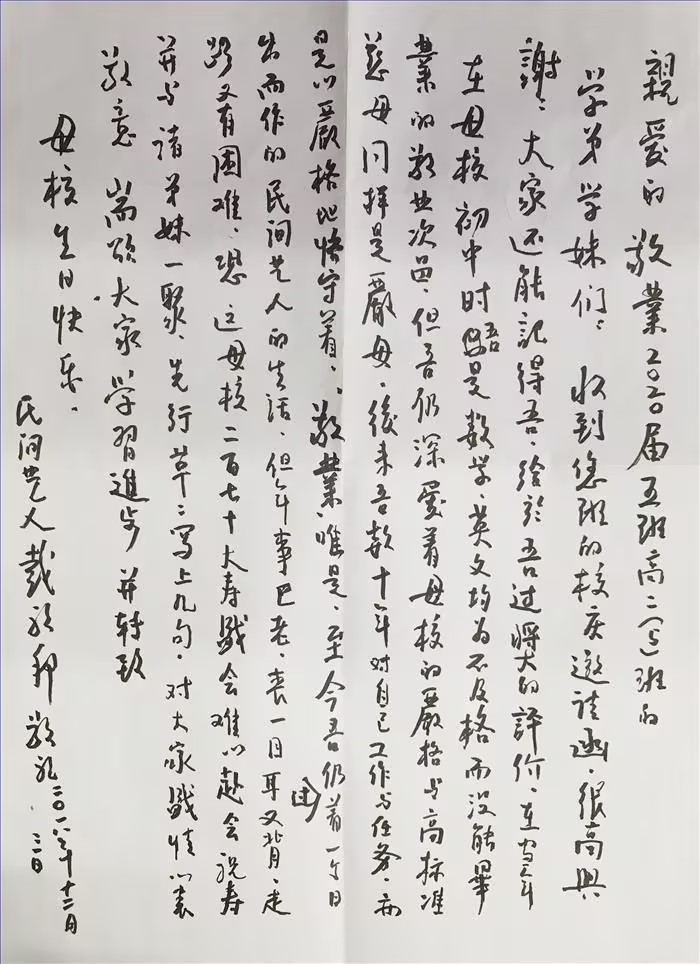 親爱的敬業2020届五班高二(5)班的
学弟学妹们：收到您班的校庆邀请函，很高興
謝謝大家还能記得吾，给於吾过獎大的評价，在当年
在母校初中时吾是数学、英文均为不及格而没能畢
業的敬业次品，但吾仍深爱着母校的嚴格与高标准
慈母同样是嚴母，後来吾数十年对自己工作与任务，亦
是以嚴格地恪守着，敬業唯是，至今吾仍着一个日
出而作的民间艺人的生活，但年事已老，丧一目耳又背，走
路又有困难，恐这母校二百七十大寿戬会难以赴会祝寿
并与諸弟妹一聚，先行草草写上几句，对大家戬情以表
敬意 耑颂大家学習進步 并转致
母校生日快乐。
民间艺人戴 敬礼
二〇一八年十二月
三日